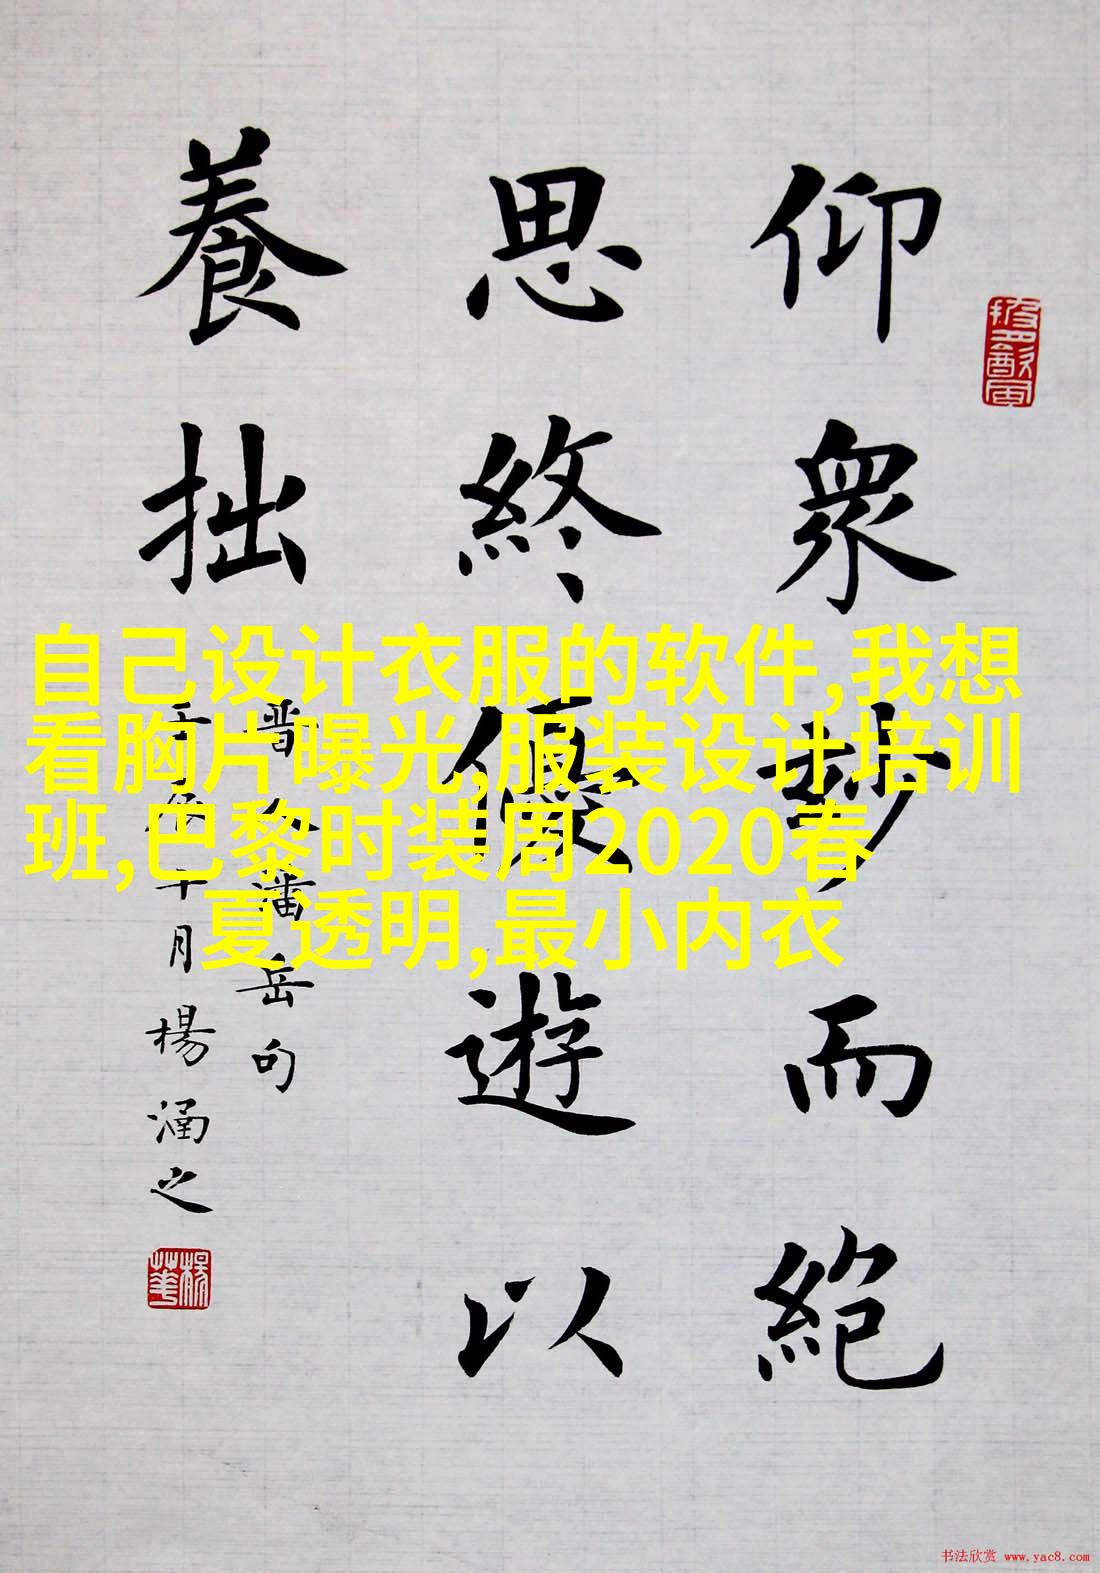 仰衆妙而絶
思終優遊以
養拙
晋人潘岳句
月楊涵之
自己设计衣服的软件,我想
看胸片曝光,服装设计培训
班,巴黎时装周2020春
夏透明,最小内衣
书法欣赏 www.yac8.com